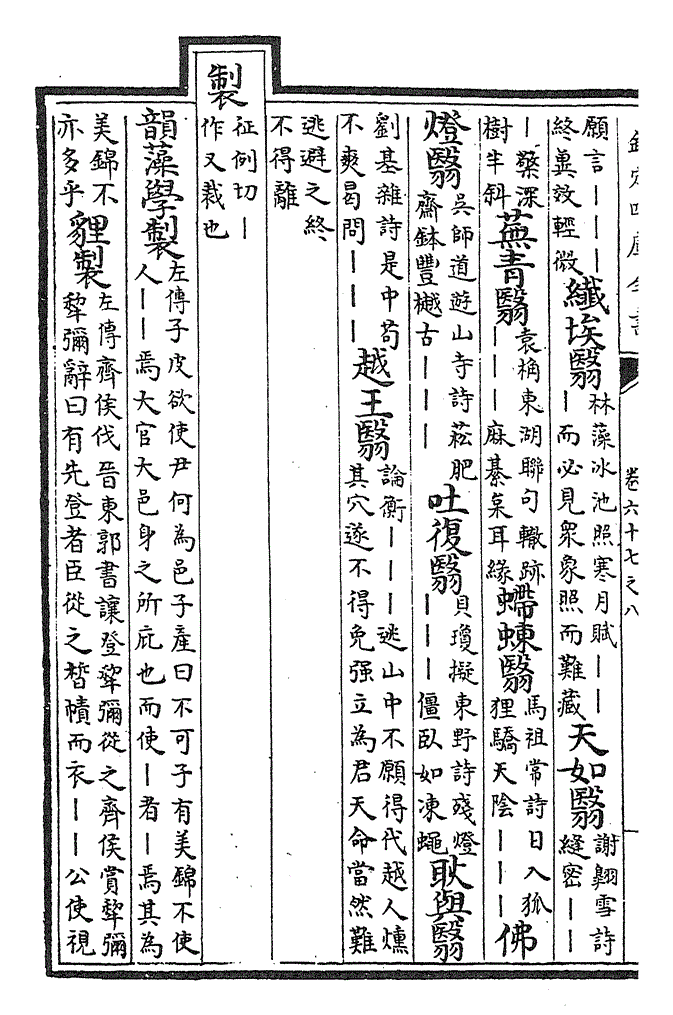 欽定四庫全書 卷六十七之八
願言丨丨丨終冀效輕微纖埃翳林藻冰池照寒月賦丨丨丨而必見衆象照而難藏天如翳謝翱雪詩縫密丨丨
丨藂深樹半斜蕪青翳袁桷東湖聯句轍跡丨丨丨麻綦菜耳緣螮蝀翳馬祖常詩日入狐狸驕天陰丨丨丨佛
燈翳吳師道遊山寺詩菘肥齋鉢豐樾古丨丨丨吐復翳貝瓊擬東野詩殘燈丨丨丨僵臥如凍蠅耿與翳
劉基雜詩是中苟不爽曷問丨丨丨越王翳論衡丨丨丨逃山中不願得代越人燻其穴遂不得免强立為君天命當然難
逃避之終不得離
製征例切丨作又裁也
韻藻學製左傳子皮欲使尹何為邑子產曰不可子有美錦不使人丨丨焉大官大邑身之所庇也而使丨者丨焉其為
美錦不亦多乎貍製左傳齊侯伐晉東郭書讓登犂彌從之齊侯賞犂彌犂彌辭曰有先登者臣從之晳幘而衣丨丨公使視